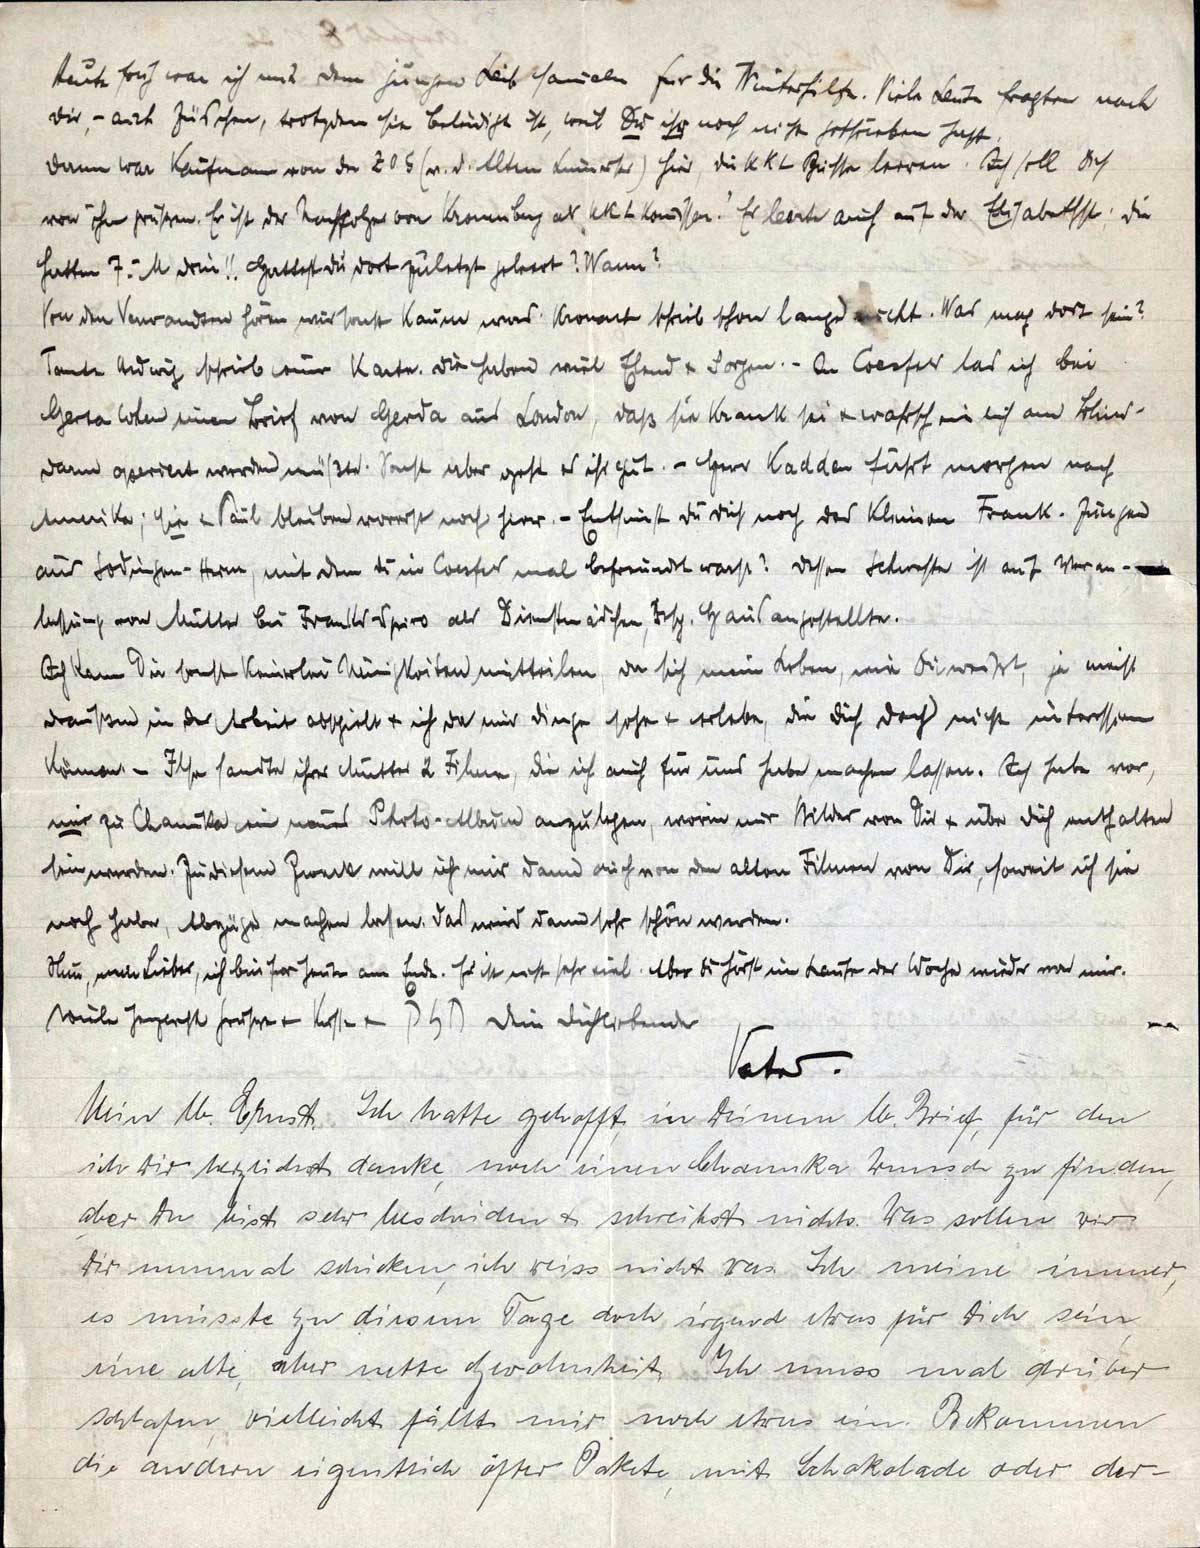 Heute früh war ich mit dem jungen Leib sammeln für die Winterhilfe. Viele Leute fragten nach
Dir, - auch Züschen, trotzdem sie beleidigt ist, weil Du ihr noch nicht geschrieben hast.
Dann war Kaufmann von der ZOG (v. d. Alten) hier, die KKL Büchse leeren. Ich soll Dich
von ihm grüßen. Er ist der Nachfolger von Kronenberg als KKL Komissar. Er leerte auch auf der Elisabethstr; die
hatten 7.- M drin!! Hattest du dort zuletzt geleert? Wann?
Von den Verwandten hören wir sonst kaum was. schrieb schon lange nicht. Was mag dort sein?
Tante Hedwig schrieb eine Karte. Die haben viel Elend & Sorgen. - In Coesfeld las ich bei
Herta Cohen einen Brief von Gerda aus London, daß sie krank sei & wahrscheinlich am Blind-
darm operiert werden müsste. Sonst aber geht es ihr gut. - Herr Kadden fährt morgen nach
Amerika; sie & Paul bleiben vorerst noch hier. - Entsinnst du dich noch des kleinen Frank-Jungen
aus Sodingen-Herne, mit dem du in Coesfeld mal befreundet warst? Dessen Schwester ist auf Veran-
lassung von Mutter bei Franks-Spiro als Dienstmädchen, bzw. Hausangestellte.
Ich kann Dir sonst keinerlei Neuigkeiten mitteilen, da sich mein Leben, wie Du weißt, ja meist
draußen in der Arbeit abspielt & ich da nur dinge sehe & erlebe, die dich doch nicht interessieren
können. - Ilse sandte ihrer Mutter 2 Filme, die ich auch für uns habe machen lassen. Ich habe vor,
mir zu Chanuka ein neues Photo-Album anzulegen, worin nur Bilder von Dir & über dich enthalten
sein werden. Zu diesem Zweck will ich mir dann auch von den alten Filmen von Dir, soweit ich sie
noch habe, Abzüge machen lassen. Das wird dann sehr schön werden.
Nun, mein Lieber, ich bin für heute am Ende. Es ist nicht sehr viel. Aber du hörst im Laufe der Woche wieder von mir.
Viele herzenste Grüsse & Küsse & Dein dichliebender
Vater.
Mein lb. Ernst. Ich hatte gehofft, in Deinem lb. Brief, für den
ich Dir herzlichst danke, noch einen Chanuka Wunsch zu finden,
aber Du bist sehr bescheiden & schreibst nichts. Was sollen wir
Dir nunmal schicken, ich weiss nicht was. Ich meine immer,
es müsste zu diesem Tage doch irgend etwas für Dich sein,
eine alte, aber nette Gewohnheit. Ich muss mal drüber
schlafen, vielleicht fällt mir noch etwas ein. Bekommen
die andern eigentlich öfter Pakete, mit Schokolade oder der-